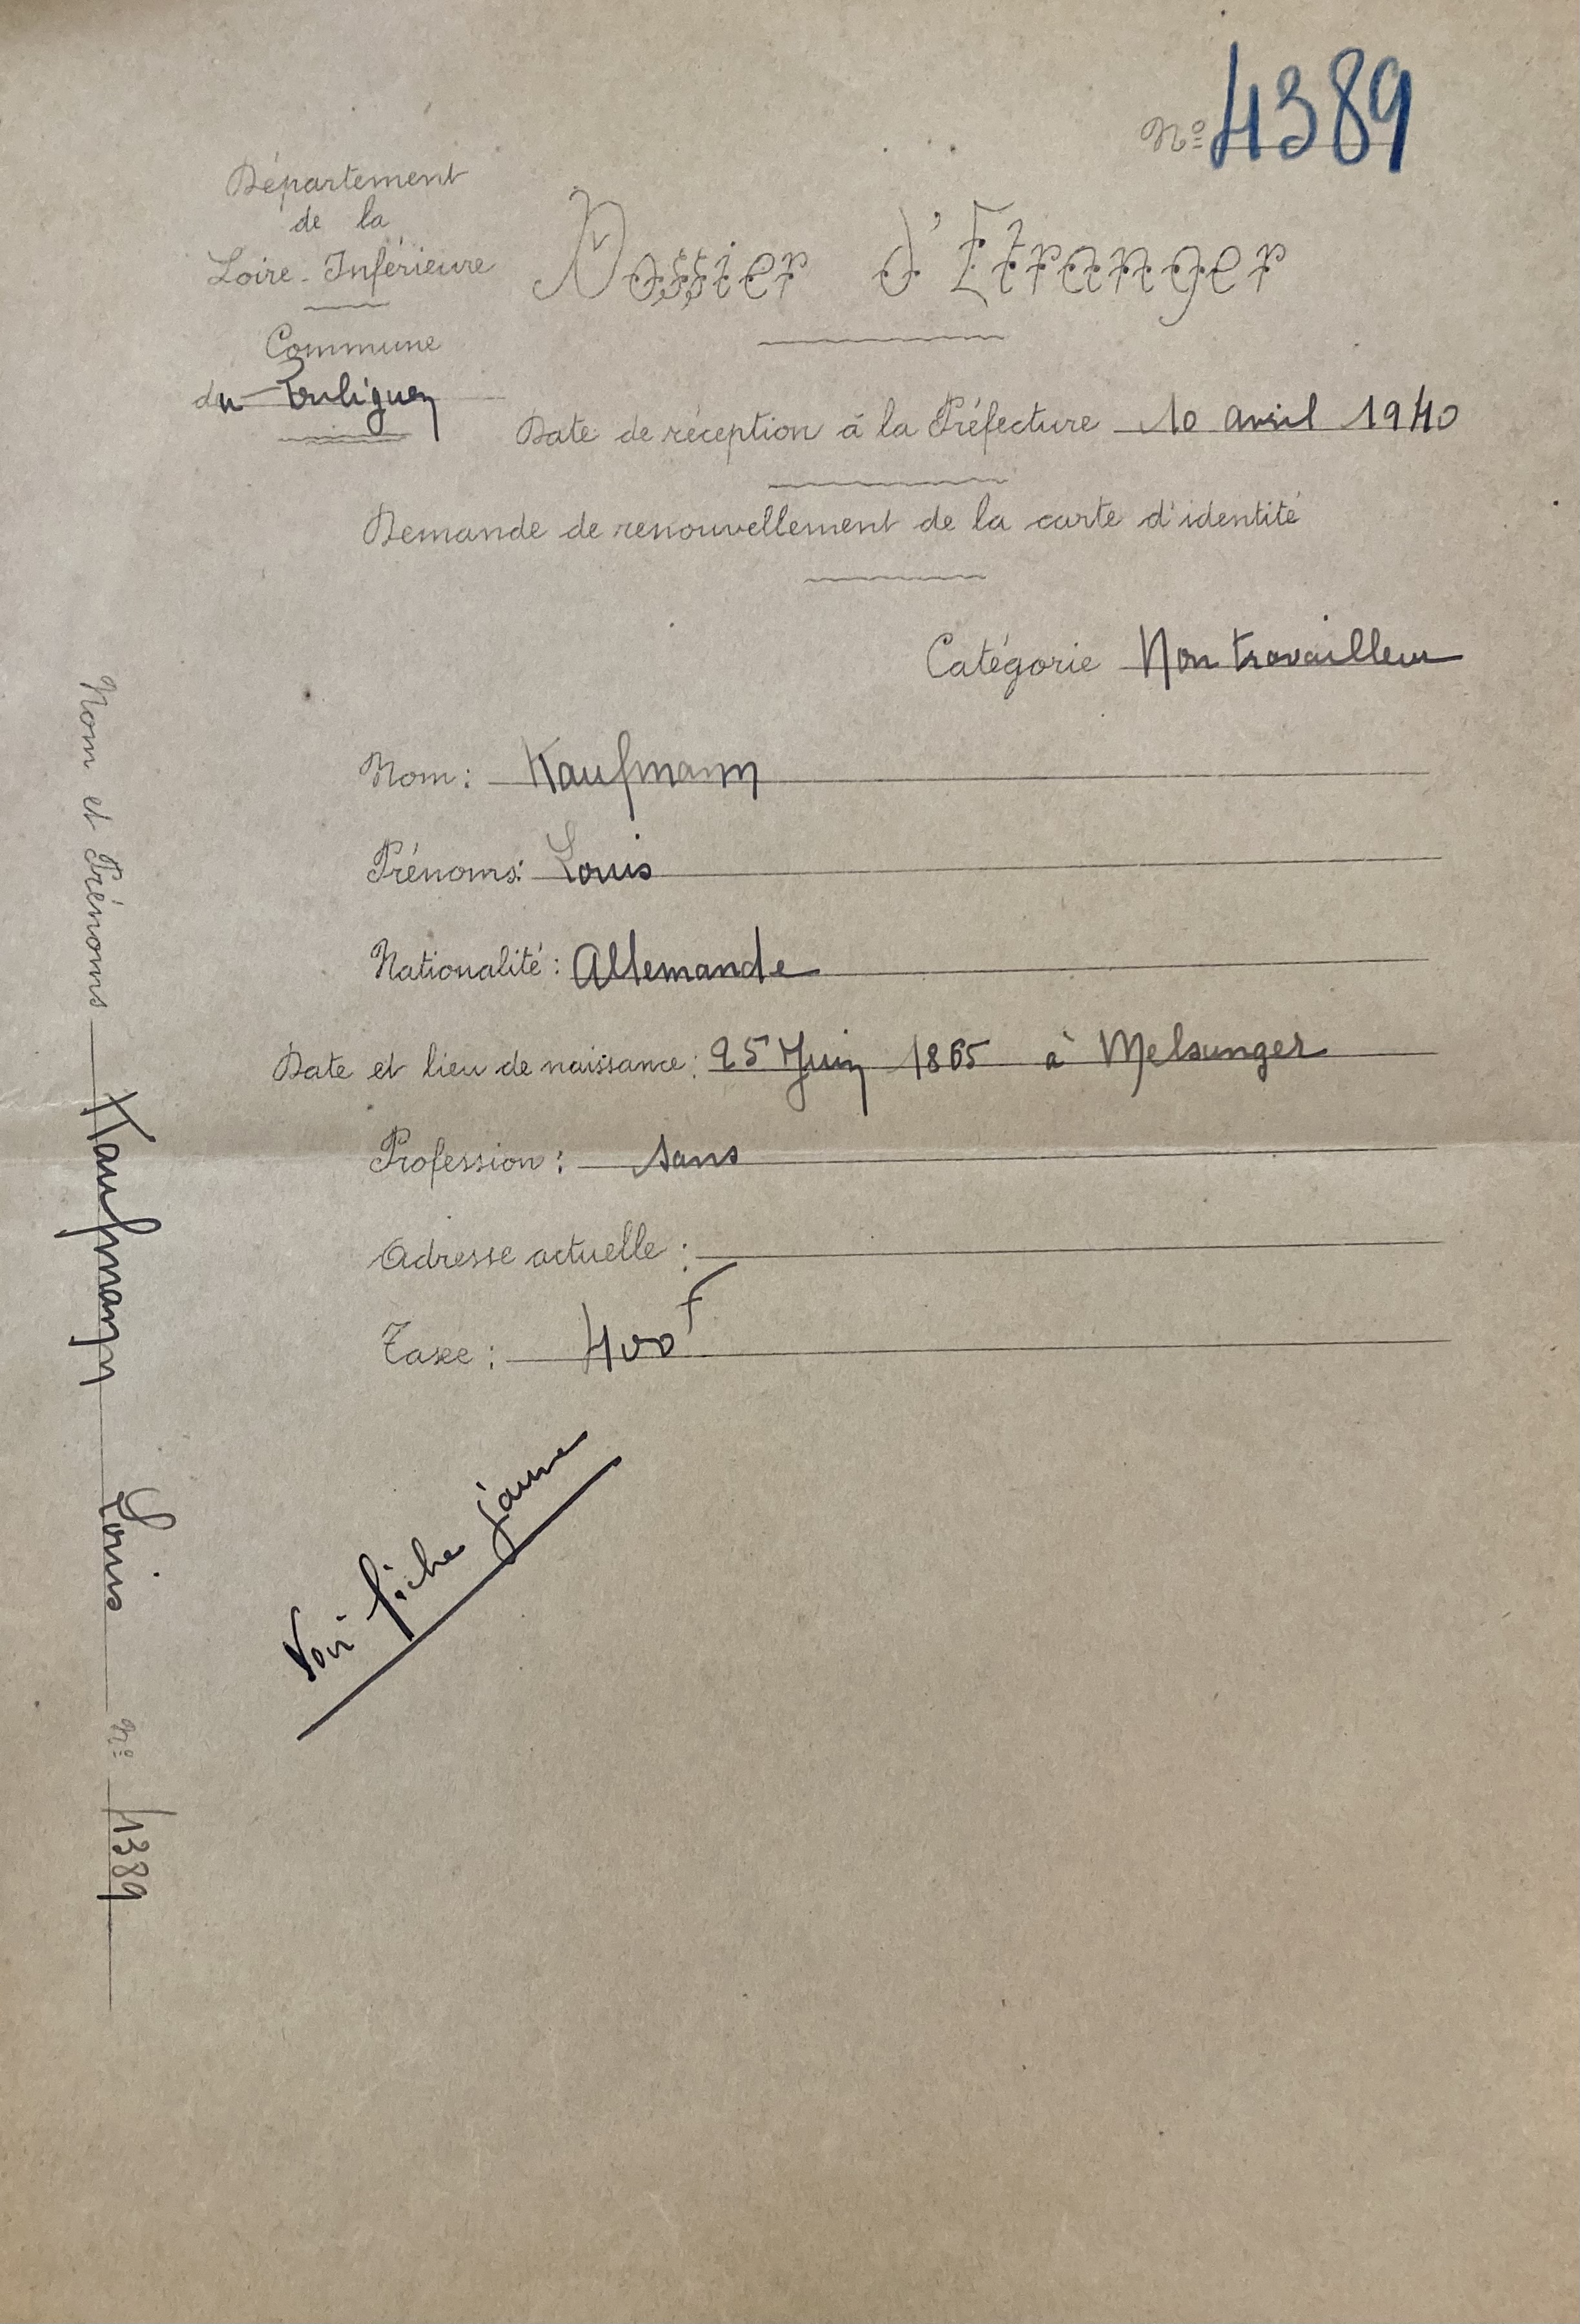 Nº 4389
Département
de la
Loire-Inférieure
Commune
du Pouliguen
Dossier d'Etranger
Date de réception à la Préfecture 10 avril 1940
Demande de renouvellement de la carte d'identité
Catégorie Non travailleur
Nom: Kaufmann
Prénoms: Louis
Nationalité: Allemande
Date et lieu de naissance: 25 Juin 1865 à Melsunger
Profession: sans
Adresse actuelle:
Taxe: 400f
Voir fiche jaune
Nom et Prénoms Kaufmann Louis Nº 4389